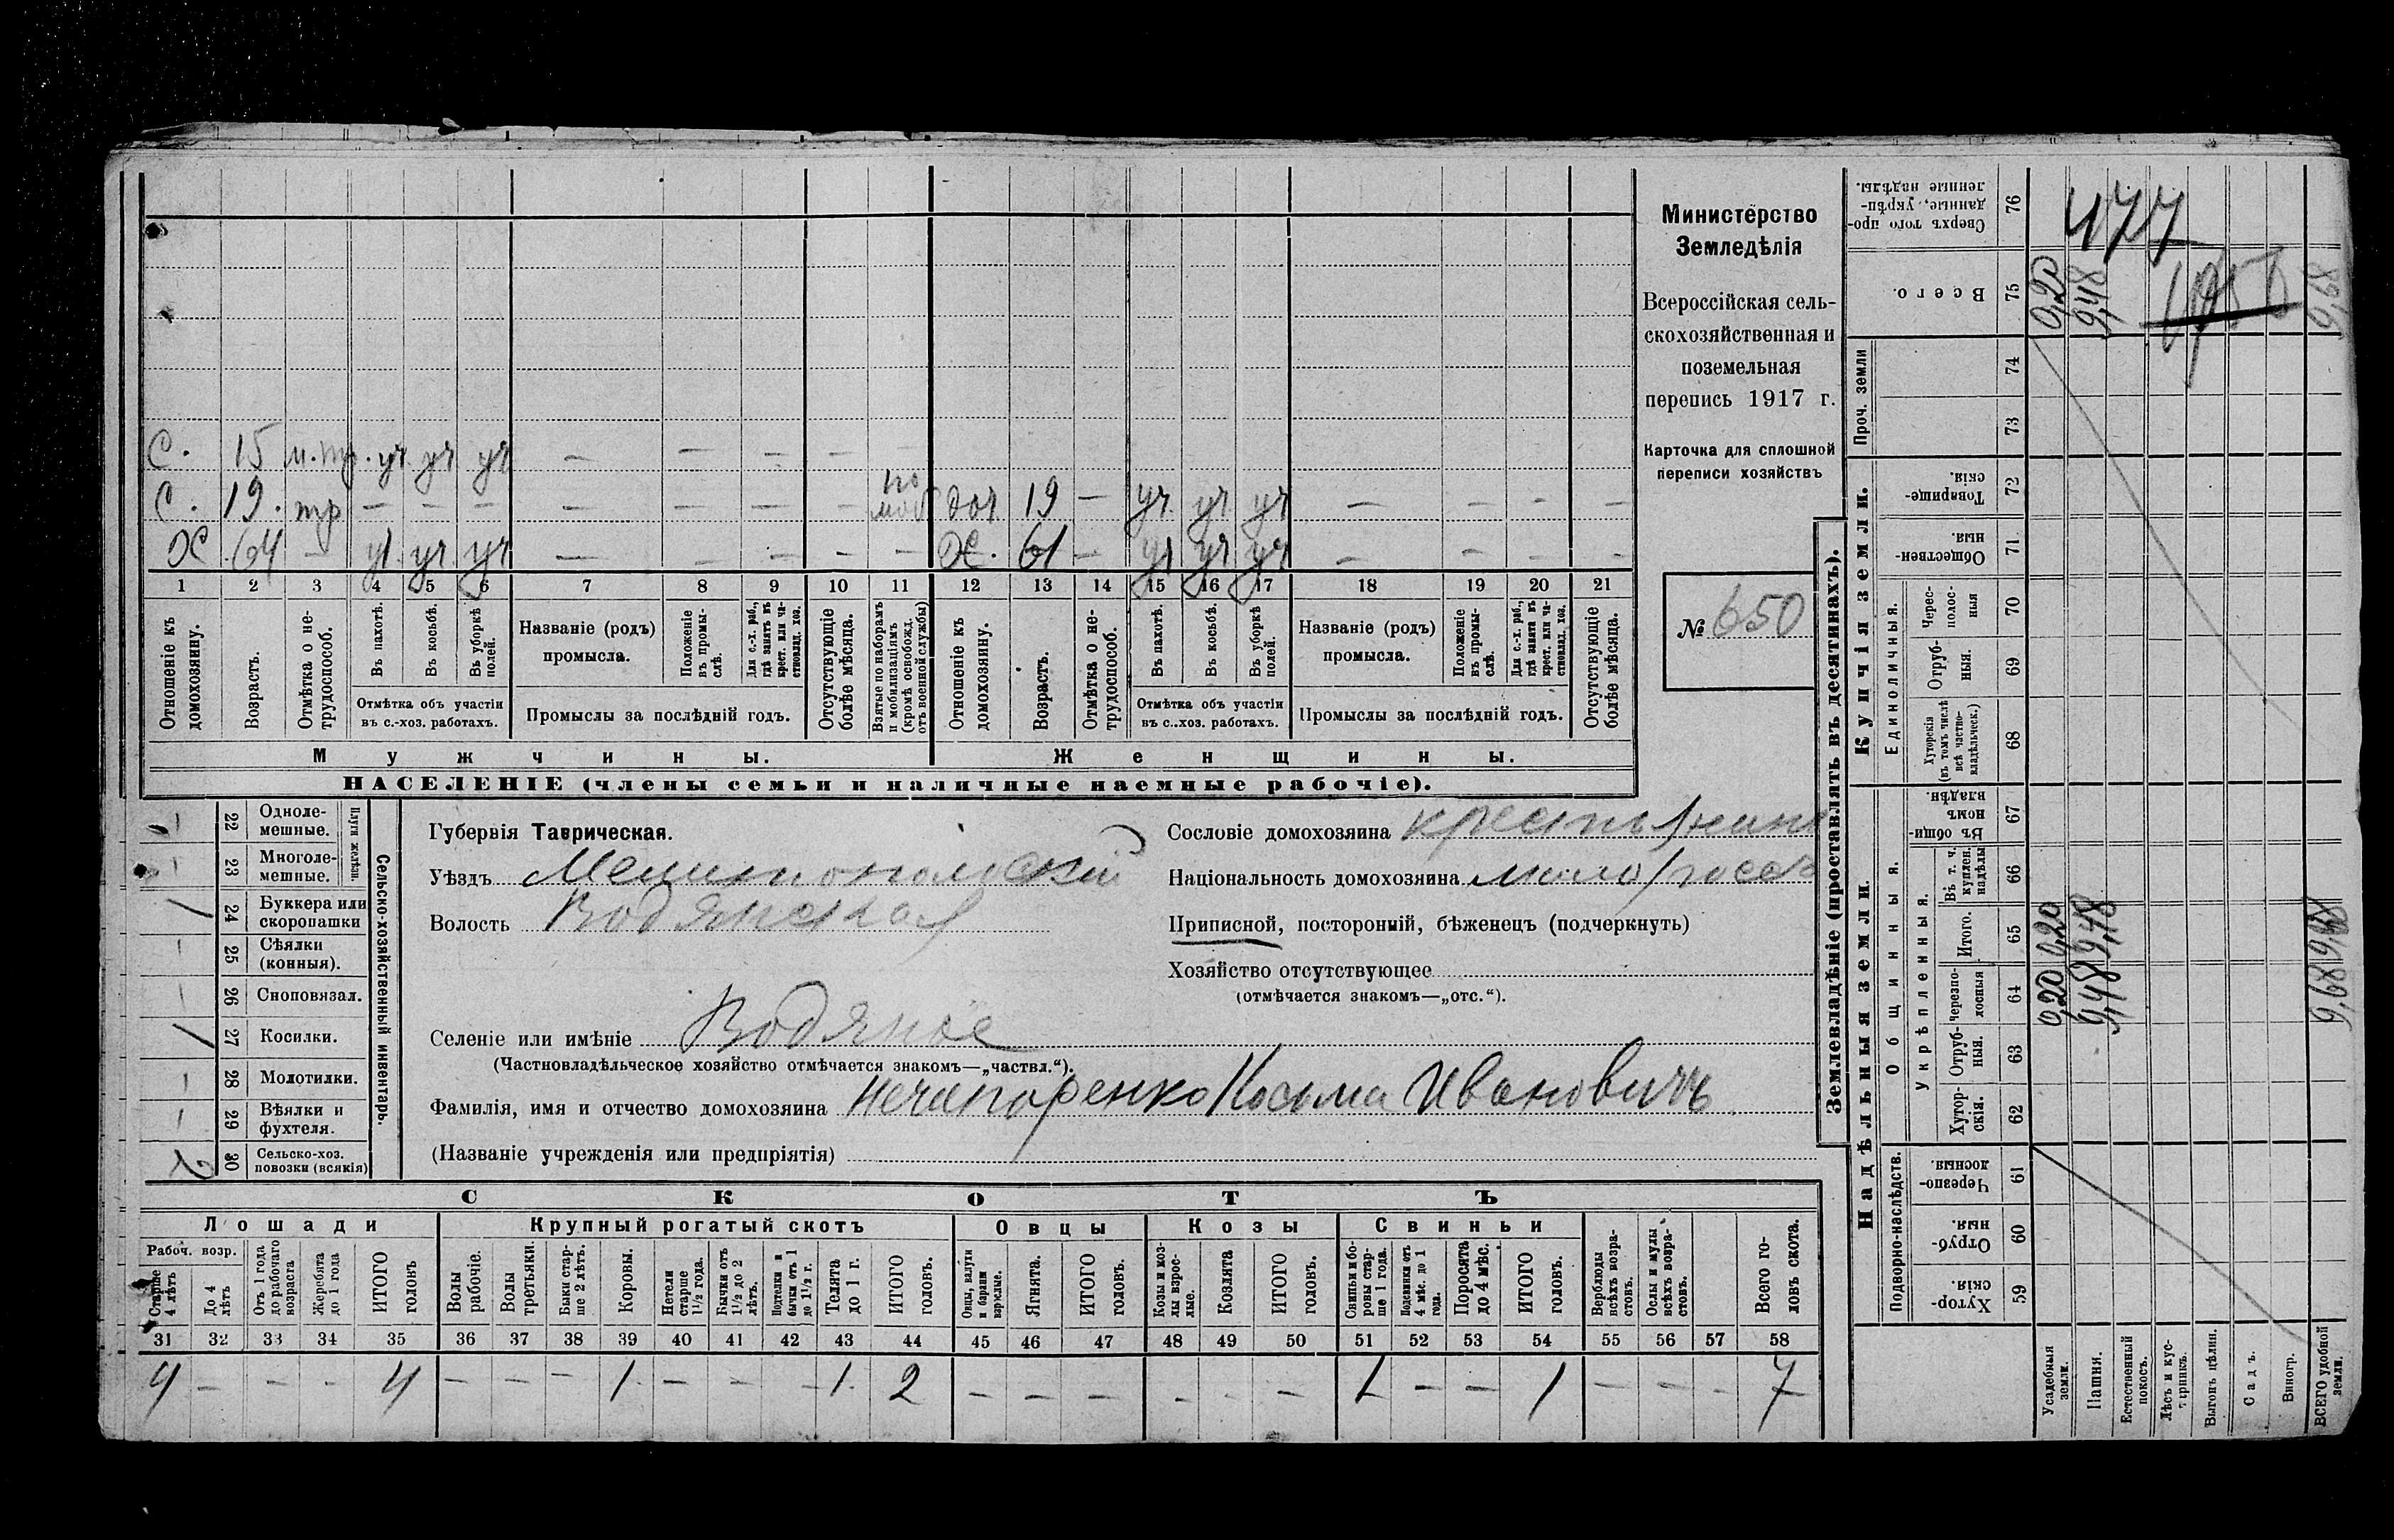 Министерство
Земледѣлія
Всероссійская сель-
скохозяйственная и
поземельная
перепись 1917 г.
Карточка для сплошной
переписи хозяйствъ
№ 650
С. 15 м.тр. уч уч уч — — — — —
С. 19. тр — — — — — — — по моб доч 19 — уч уч уч — — — —
Х 64 — уч уч уч — — — — — Х. 61 — уч уч уч — — — —
1 2 3 4 5 6 7 8 9 10 11 12 13 14 15 16 17 18 19 20 21
Отношеніе къ домохозяину.
Возрастъ.
Отмѣтка о не-трудоспособ.
Въ пахотѣ.
Въ косьбѣ.
Въ уборкѣ полей.
Отмѣтка объ участіи въ с.-хоз. работахъ.
Названіе (родъ) промысла.
Положеніе въ промы-слѣ.
Для с.-х. раб., гдѣ занятъ въ крест. или ча-стновлад. хоз.
Промыслы за послѣдній годъ.
Отсутствующіе болѣе мѣсяца.
Взятые по наборамъ и мобилизаціямъ (кромѣ освобожд. отъ военной службы)
Отношеніе къ домохозяину.
Возрастъ.
Отмѣтка о не-трудоспособ.
Въ пахотѣ.
Въ косьбѣ.
Въ уборкѣ полей.
Отмѣтка объ участіи въ с..хоз. работахъ.
Названіе (родъ) промысла.
Положеніе въ промы-слѣ.
Для с.-х. раб., гдѣ занята въ крест. или ча-стновлад. хоз.
Промыслы за послѣдній годъ.
Отсутствующіе болѣе мѣсяца.
Мужчины. Женщины.
НАСЕЛЕНІЕ (члены семьи и наличные наемные рабочіе).
Сельско-хозяйственный инвентарь.
Плуги желѣзн.
— 22 Одноле-мешные.
— 23 Многоле-мешные.
1 24 Буккера или скоропашки
— 25 Сѣялки (конныя).
— 26 Сноповязал.
1 27 Косилки.
— 28 Молотилки.
— 29 Вѣялки и фухтеля.
2 30 Сельско-хоз. повозки (всякія)
Губернія Таврическая.
Уѣздъ Мелитопольскій
Волость Водянская
Селеніе или имѣніе Водяное
(Частновладѣльческое хозяйство отмѣчается знакомъ—„частвл.“).
Фамилія, имя и отчество домохозяина Нечипоренко Косьма Ивановичъ
(Названіе учрежденія или предпріятія)
Сословіе домохозяина крестьянинъ
Національность домохозяина малоросс
Приписной, посторонній, бѣженецъ (подчеркнуть)
Хозяйство отсутствующее
(отмѣчается знакомъ—„отс.“).
СКОТЪ
Лошади Крупный рогатый скотъ Овцы Козы Свиньи
Рабоч. возр.
Старше 4 лѣтъ
До 4 лѣтъ
Отъ 1 года до рабочаго возраста
Жеребята до 1 года
ИТОГО головъ
Волы рабочіе.
Волы третьяки.
Быки стар-ше 2 лѣтъ.
Коровы.
Нетели старше 1½ года.
Бычки отъ 1½ до 2 лѣтъ.
Подтелки и бычки отъ 1 до 1½ г.
Телята до 1 г.
ИТОГО головъ.
Овцы, валухи и бараны взрослые.
Ягнята.
ИТОГО головъ.
Козы и коз-лы взрос-лые.
Козлята
ИТОГО головъ.
Свиньи и бо-ровы стар-ше 1 года.
Подсвинки отъ 4 мѣс. до 1 года.
Поросята до 4 мѣс.
ИТОГО головъ.
Верблюды всѣхъ возра-стовъ.
Ослы и мулы всѣхъ возра-стовъ.
Всего го-ловъ скота.
31 32 33 34 35 36 37 38 39 40 41 42 43 44 45 46 47 48 49 50 51 52 53 54 55 56 57 58
4 — — — 4 — — — 1 — — — 1 2 — — — — — — 1 — — 1 — — — 7
Землевладѣніе (проставлять въ десятинахъ).
Надѣльныя земли. Купчія земли. Проч. земли
Подворно-наслѣдств.
Хутор-скія. 59
Отруб-ныя. 60
Черезпо-лосныя. 61
Общинныя.
Укрѣпленныя.
Хутор-скія. 62
Отруб-ныя. 63
Черезпо-лосныя 64
Итого. 65
Въ т. ч. куплен. надѣлы 66
Въ общин-номъ владѣн. 67
Единоличныя.
Хуторскія (въ томъ числѣ всѣ частно-владѣльческ.) 68
Отруб-ныя. 69
Черес-полос-ныя 70
Обществен-ныя. 71
Товарище-скія. 72
73
74
Всего. 75
Сверхъ того про-данные, укрѣп-ленные надѣлы. 76
Усадебныя земли. 0,20 0,20 0,20
Пашня. 9,48 9,48 9,48
Естественный покосъ.
Лѣсъ и кус-тарникъ.
Выгонъ цѣлин.
Садъ.
Виногр.
ВСЕГО удобной земли. 9,68 9,68 9,68
477